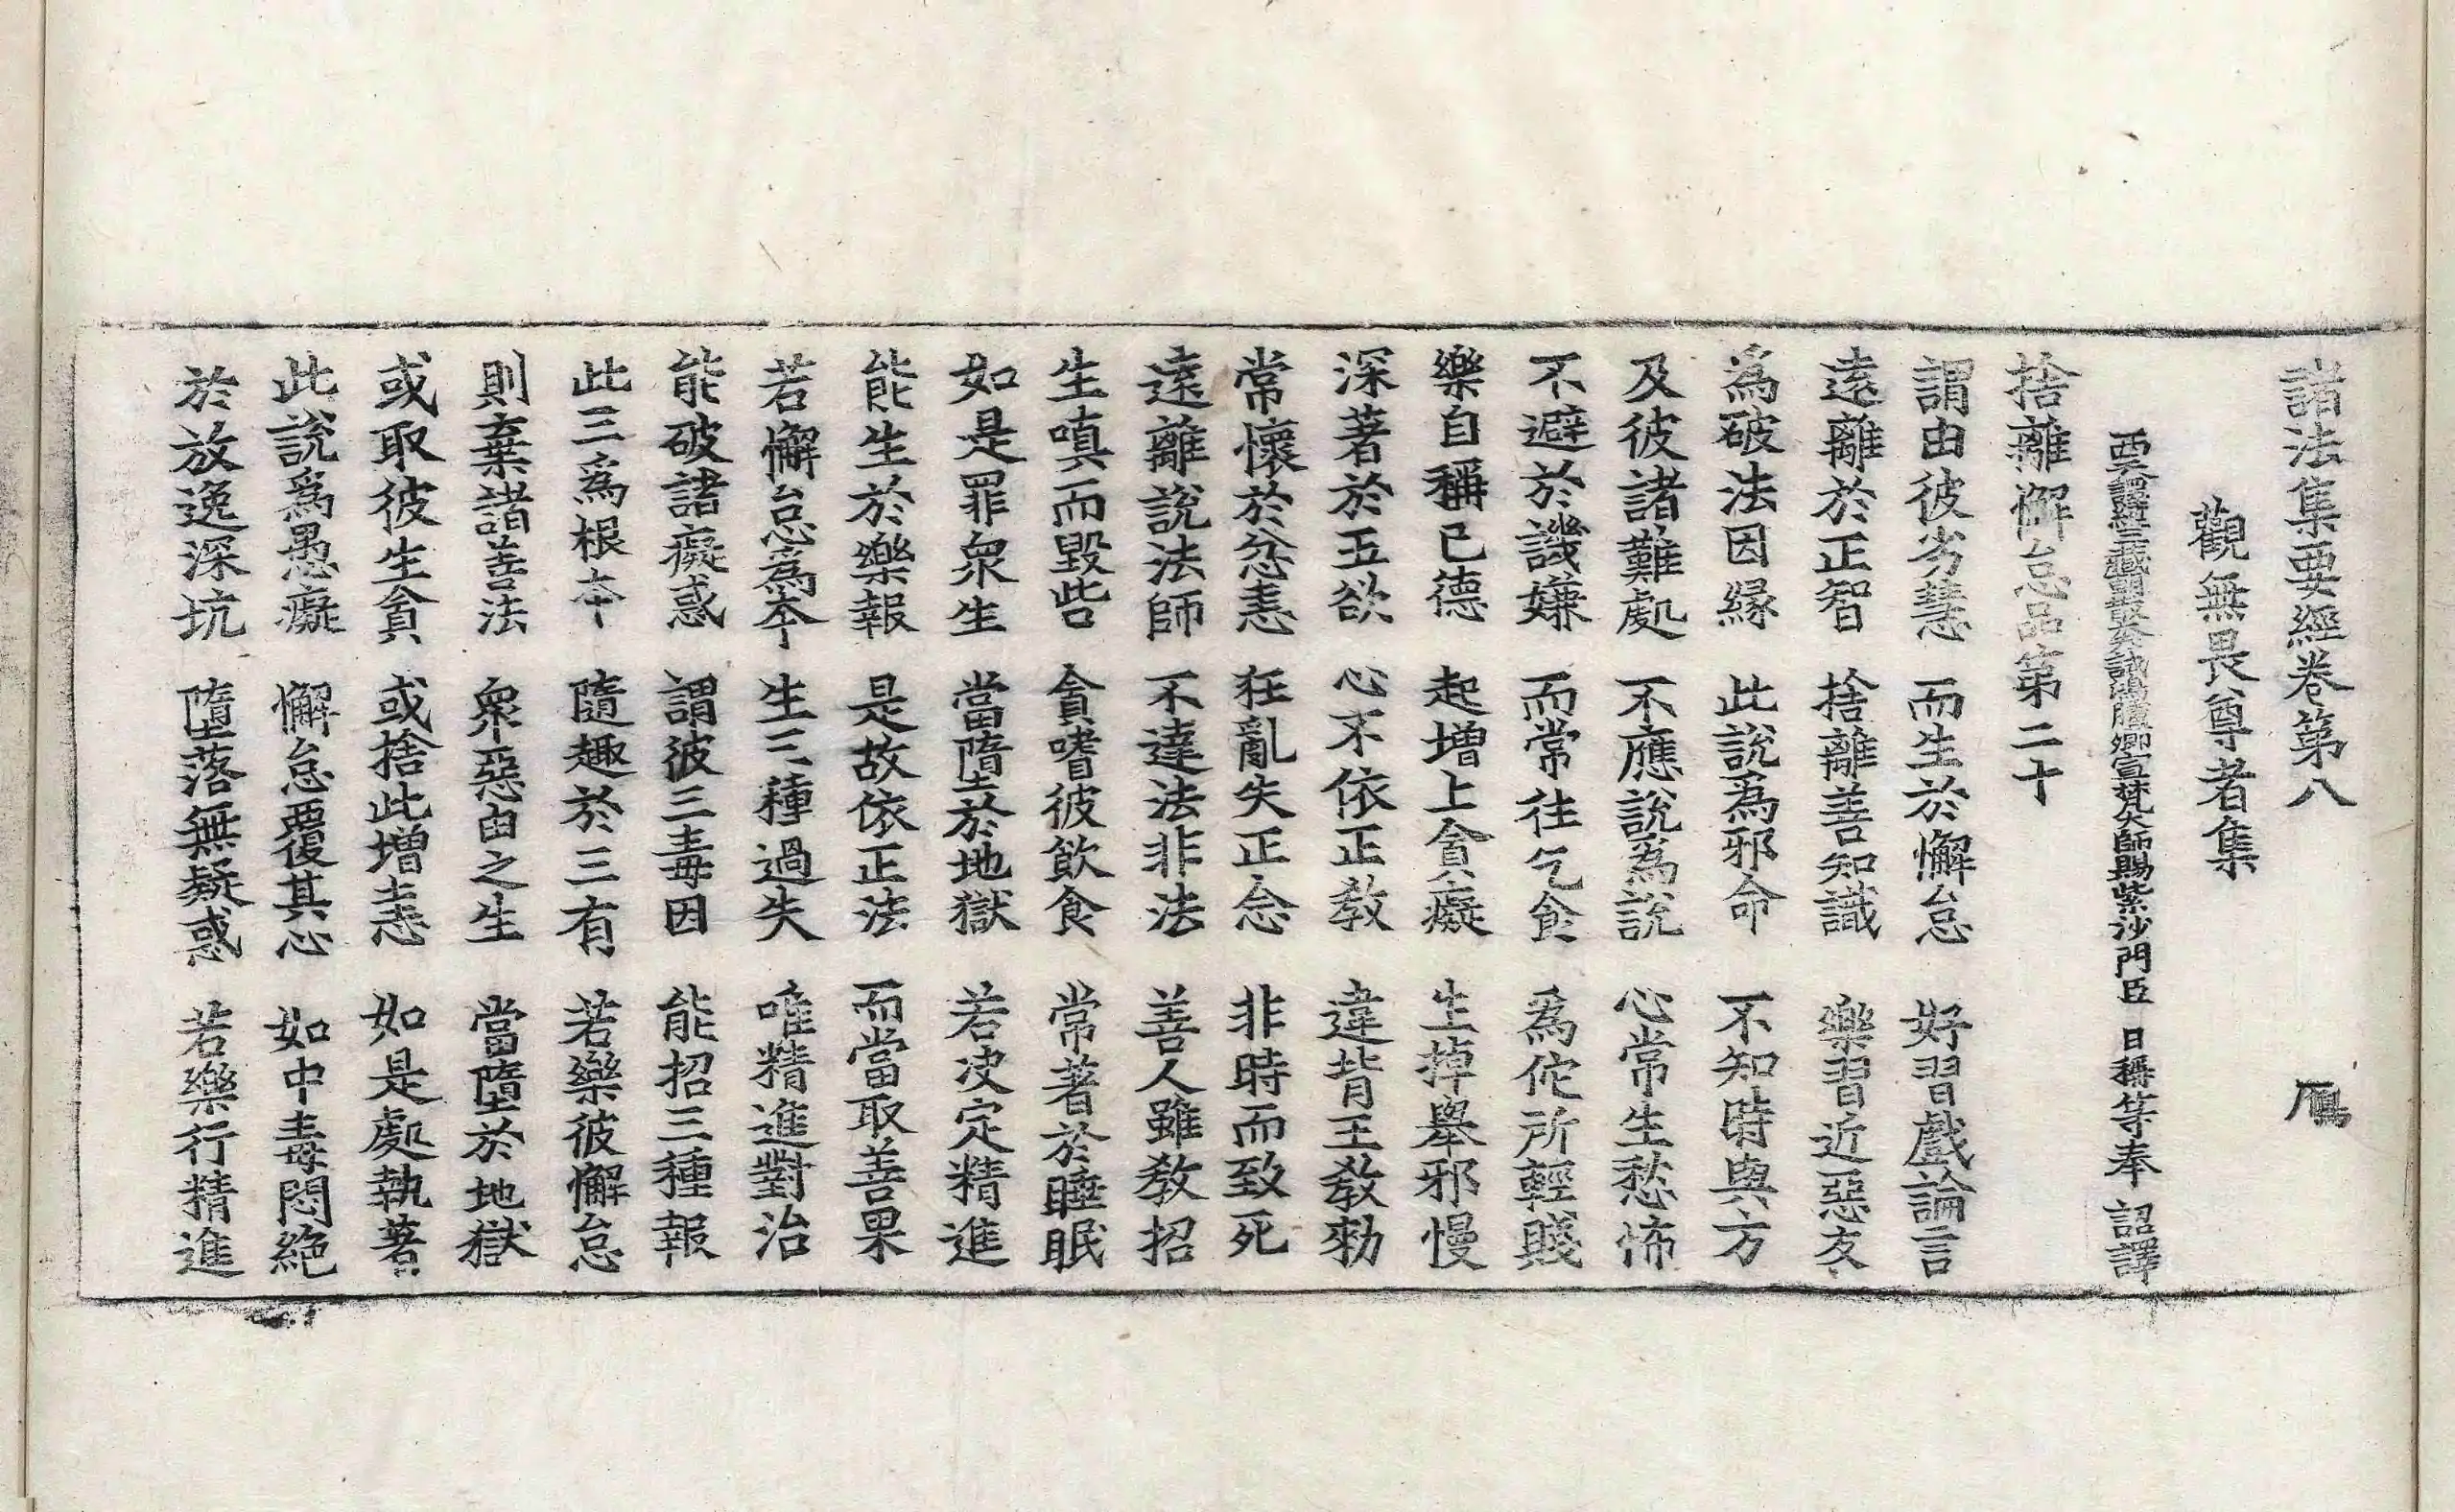 諸法集要經卷第八 鴈
觀無畏尊者集
西天譯經三藏朝散大夫試鴻臚卿宣梵大師賜紫沙門臣 日稱等奉 詔譯
捨離懈怠品第二十
謂由彼劣慧 而生於懈怠 好習戲論言
遠離於正智 捨離善知識 樂習近惡友
爲破法因縁 此說爲邪命 不知時與方
及彼諸難處 不應說爲說 心常生愁怖
不避於譏嫌 而常往乞食 爲佗所輕賤
樂自稱己德 起增上貪癡 生掉舉邪慢
深著於五欲 心不依正教 違背王教勑
常懷於忿恚 狂亂失正念 非時而致死
遠離說法師 不達法非法 善人雖教招
生嗔而毀呰 貪嗜彼飲食 常著於睡眠
如是罪衆生 當墮於地獄 若决定精進
能生於樂報 是故依正法 而當取善果
若懈怠爲本 生三種過失 唯精進對治
能破諸癡惑 謂彼三毒因 能招三種報
此三爲根本 隨趣於三有 若樂彼懈怠
則棄諸善法 衆惡由之生 當墮於地獄
或取彼生貪 或捨此增恚 如是處執著
此說爲愚癡 懈怠覆其心 如中毒悶絶
於放逸深坑 墮落無疑惑 若樂行精進